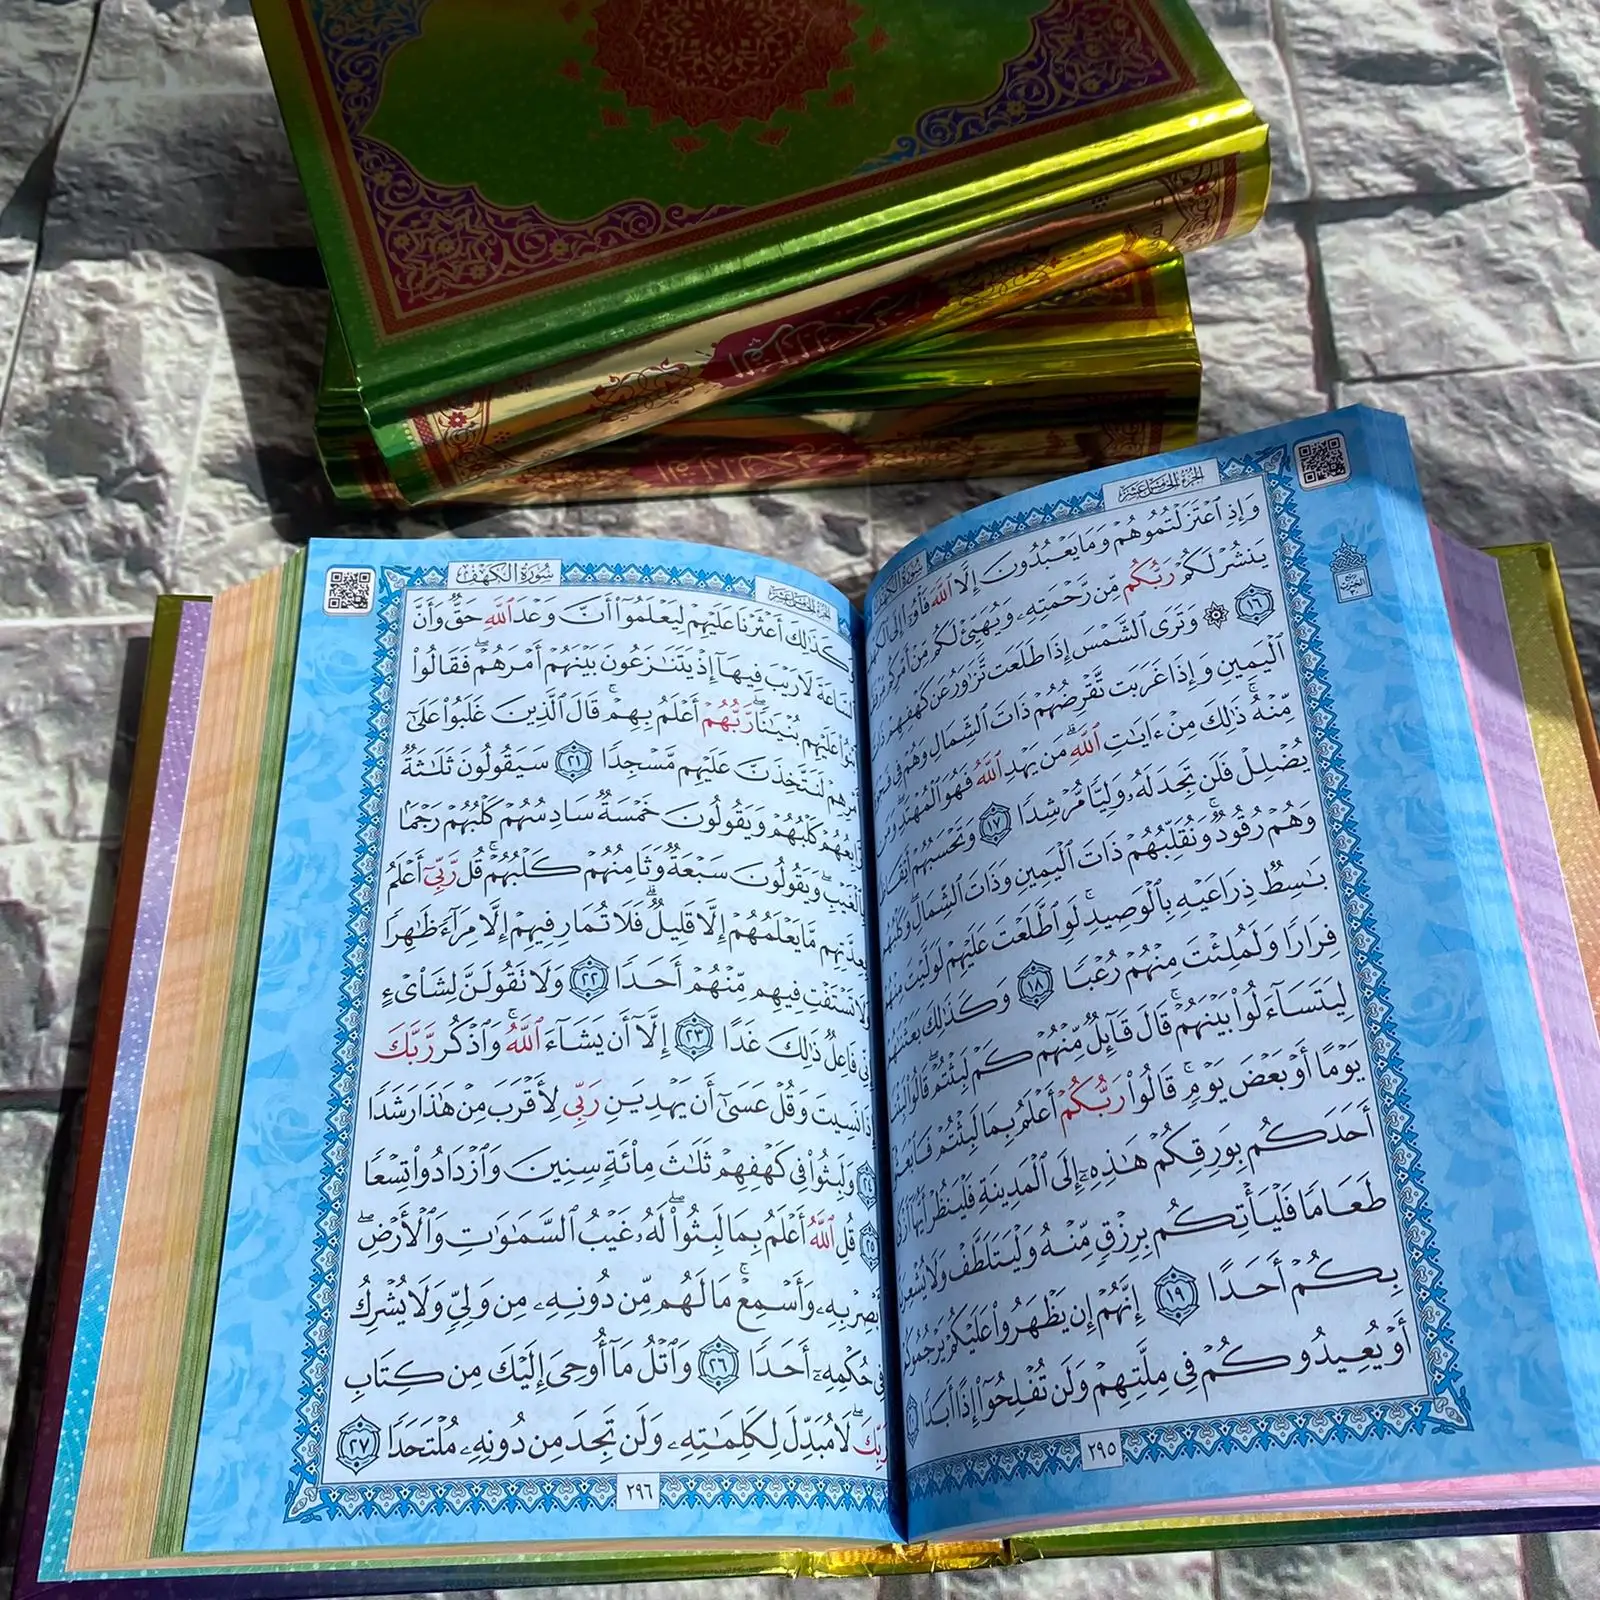 القرآن الكريم
القرآن الكريم
الجزء الخامس عشر
سورة الكهف
وَإِذِ ٱعۡتَزَلۡتُمُوهُمۡ وَمَا يَعۡبُدُونَ إِلَّا ٱللَّهَ فَأۡوُۥٓاْ إِلَى
يَنشُرۡ لَكُمۡ رَبُّكُم مِّن رَّحۡمَتِهِۦ وَيُهَيِّئۡ لَكُم مِّنۡ أَمۡرِكُم
١٦ ۞ وَتَرَى ٱلشَّمۡسَ إِذَا طَلَعَت تَّزَٰوَرُ عَن كَهۡفِهِمۡ ذَاتَ
ٱلۡيَمِينِ وَإِذَا غَرَبَت تَّقۡرِضُهُمۡ ذَاتَ ٱلشِّمَالِ وَهُمۡ فِي
مِّنۡهُۚ ذَٰلِكَ مِنۡ ءَايَٰتِ ٱللَّهِۗ مَن يَهۡدِ ٱللَّهُ فَهُوَ ٱلۡمُهۡتَدِۖ وَمَن
يُضۡلِلۡ فَلَن تَجِدَ لَهُۥ وَلِيّٗا مُّرۡشِدٗا ١٧ وَتَحۡسَبُهُمۡ أَيۡقَاظٗا
وَهُمۡ رُقُودٞۚ وَنُقَلِّبُهُمۡ ذَاتَ ٱلۡيَمِينِ وَذَاتَ ٱلشِّمَالِۖ وَكَلۡبُهُم
بَٰسِطٞ ذِرَاعَيۡهِ بِٱلۡوَصِيدِۚ لَوِ ٱطَّلَعۡتَ عَلَيۡهِمۡ لَوَلَّيۡتَ مِنۡهُمۡ
فِرَارٗا وَلَمُلِئۡتَ مِنۡهُمۡ رُعۡبٗا ١٨ وَكَذَٰلِكَ بَعَثۡنَٰهُمۡ
لِيَتَسَآءَلُواْ بَيۡنَهُمۡۚ قَالَ قَآئِلٞ مِّنۡهُمۡ كَمۡ لَبِثۡتُمۡۖ قَالُواْ لَبِثۡنَا
يَوۡمًا أَوۡ بَعۡضَ يَوۡمٖۚ قَالُواْ رَبُّكُمۡ أَعۡلَمُ بِمَا لَبِثۡتُمۡ فَٱبۡعَثُوٓاْ
أَحَدَكُم بِوَرِقِكُمۡ هَٰذِهِۦٓ إِلَى ٱلۡمَدِينَةِ فَلۡيَنظُرۡ أَيُّهَآ أَزۡكَىٰ
طَعَامٗا فَلۡيَأۡتِكُم بِرِزۡقٖ مِّنۡهُ وَلۡيَتَلَطَّفۡ وَلَا يُشۡعِرَنَّ
بِكُمۡ أَحَدًا ١٩ إِنَّهُمۡ إِن يَظۡهَرُواْ عَلَيۡكُمۡ يَرۡجُمُوكُمۡ
أَوۡ يُعِيدُوكُمۡ فِي مِلَّتِهِمۡ وَلَن تُفۡلِحُوٓاْ إِذًا أَبَدٗا
٢٩٥
الجزء الخامس عشر
سورة الكهف
وَكَذَٰلِكَ أَعۡثَرۡنَا عَلَيۡهِمۡ لِيَعۡلَمُوٓاْ أَنَّ وَعۡدَ ٱللَّهِ حَقّٞ وَأَنَّ
ٱلسَّاعَةَ لَا رَيۡبَ فِيهَآ إِذۡ يَتَنَٰزَعُونَ بَيۡنَهُمۡ أَمۡرَهُمۡۖ فَقَالُواْ
ٱبۡنُواْ عَلَيۡهِم بُنۡيَٰنٗاۖ رَّبُّهُمۡ أَعۡلَمُ بِهِمۡۚ قَالَ ٱلَّذِينَ غَلَبُواْ عَلَىٰٓ
أَمۡرِهِمۡ لَنَتَّخِذَنَّ عَلَيۡهِم مَّسۡجِدٗا ٢١ سَيَقُولُونَ ثَلَٰثَةٞ
رَّابِعُهُمۡ كَلۡبُهُمۡ وَيَقُولُونَ خَمۡسَةٞ سَادِسُهُمۡ كَلۡبُهُمۡ رَجۡمَۢا
بِٱلۡغَيۡبِۖ وَيَقُولُونَ سَبۡعَةٞ وَثَامِنُهُمۡ كَلۡبُهُمۡۚ قُل رَّبِّيٓ أَعۡلَمُ
بِعِدَّتِهِم مَّا يَعۡلَمُهُمۡ إِلَّا قَلِيلٞۗ فَلَا تُمَارِ فِيهِمۡ إِلَّا مِرَآءٗ ظَٰهِرٗا
وَلَا تَسۡتَفۡتِ فِيهِم مِّنۡهُمۡ أَحَدٗا ٢٢ وَلَا تَقُولَنَّ لِشَاْيۡءٍ
إِنِّي فَاعِلٞ ذَٰلِكَ غَدًا ٢٣ إِلَّآ أَن يَشَآءَ ٱللَّهُۚ وَٱذۡكُر رَّبَّكَ
إِذَا نَسِيتَ وَقُلۡ عَسَىٰٓ أَن يَهۡدِيَنِ رَبِّي لِأَقۡرَبَ مِنۡ هَٰذَا رَشَدٗا
٢٤ وَلَبِثُواْ فِي كَهۡفِهِمۡ ثَلَٰثَ مِاْئَةٖ سِنِينَ وَٱزۡدَادُواْ تِسۡعٗا
٢٥ قُلِ ٱللَّهُ أَعۡلَمُ بِمَا لَبِثُواْۖ لَهُۥ غَيۡبُ ٱلسَّمَٰوَٰتِ وَٱلۡأَرۡضِۖ
أَبۡصِرۡ بِهِۦ وَأَسۡمِعۡۚ مَا لَهُم مِّن دُونِهِۦ مِن وَلِيّٖ وَلَا يُشۡرِكُ
فِي حُكۡمِهِۦٓ أَحَدٗا ٢٦ وَٱتۡلُ مَآ أُوحِيَ إِلَيۡكَ مِن كِتَابِ
رَبِّكَۖ لَا مُبَدِّلَ لِكَلِمَٰتِهِۦ وَلَن تَجِدَ مِن دُونِهِۦ مُلۡتَحَدٗا ٢٧
٢٩٦